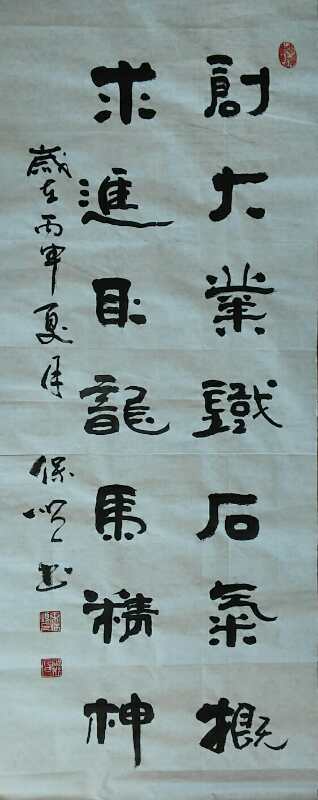 創大業鐵石氣概
求進取龍馬精神
歲在丙申夏月 保 書